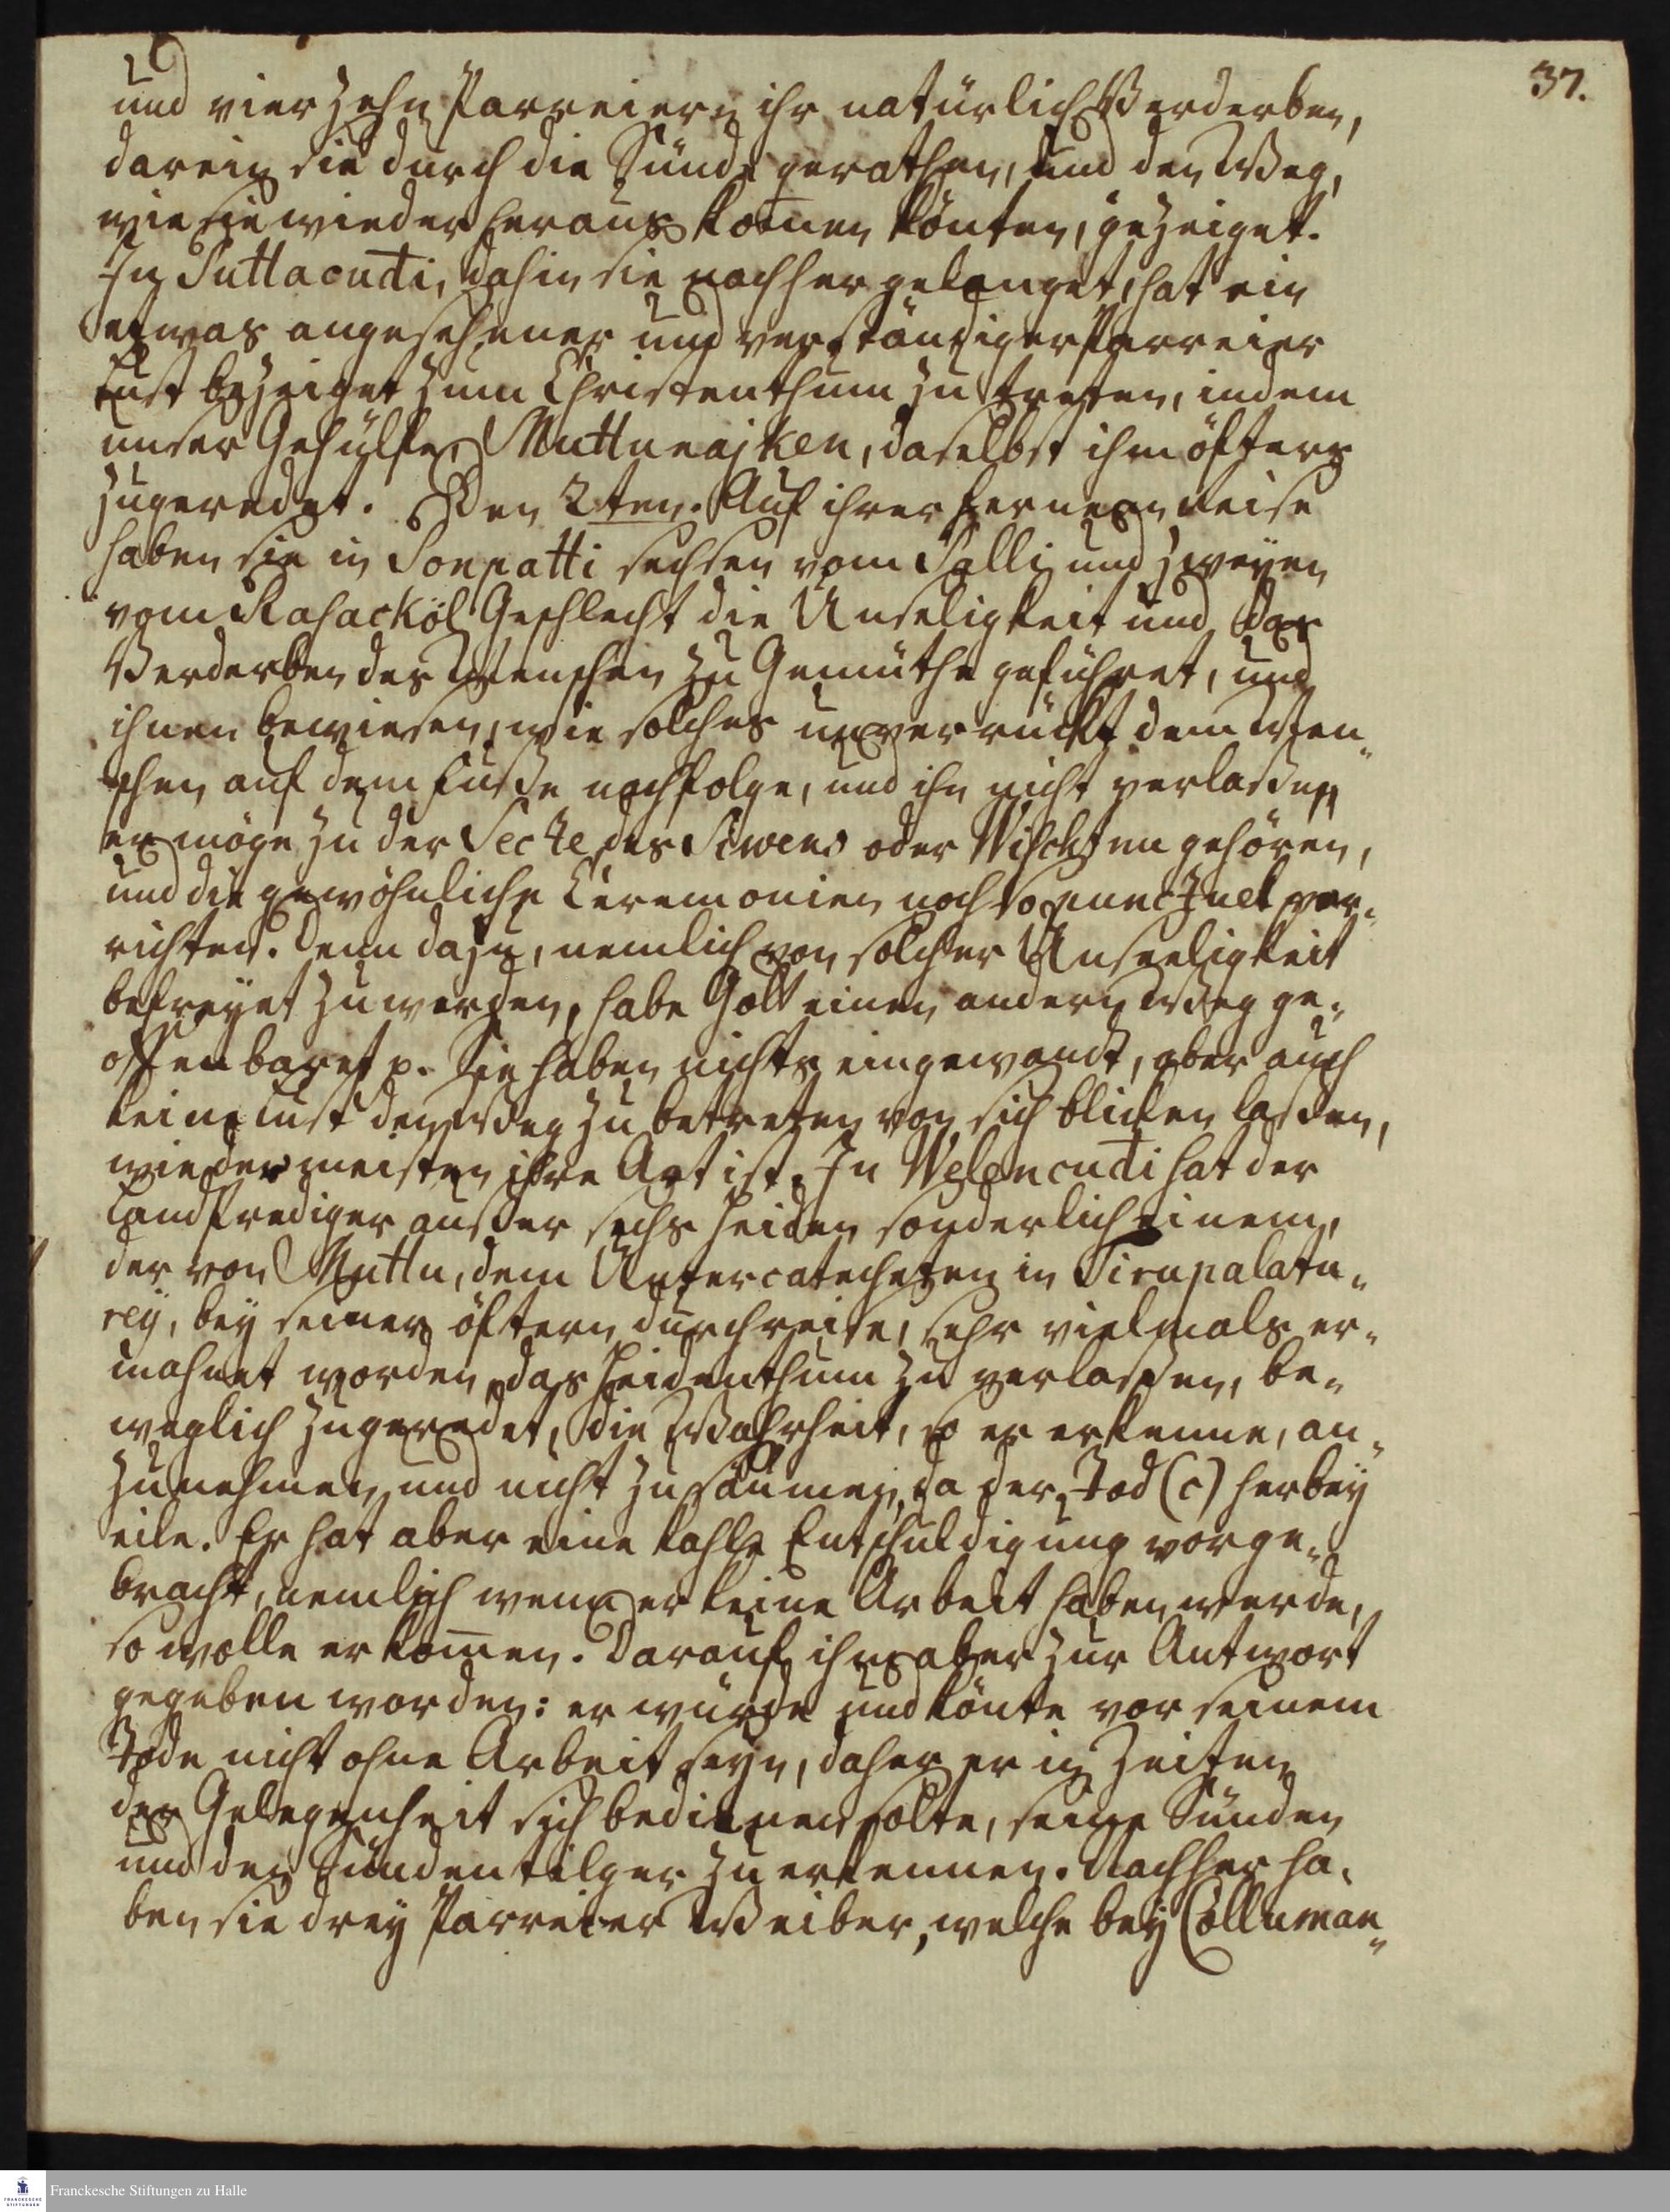 37.
und vierzehn Parreiern ihr natürlich Verderben,
darein sie durch die Sünde gerathen, und den Weg,
wie sie wieder heraus kom̄en könten, gezeiget.
In Puttacudi, dahin sie nachher gelanget, hat ein
etwas angesehener und verständiger Parreier
Lust bezeiget zum Christenthum zu treten, indem
unser Gehülfe Muttunajken, daselbst ihm öfters
zugeredet. Den 2ten. Auf ihrer ferneren Reise
haben sie in Sonpatti sechsen vom Palli und zweyen
vom Rasackol Geschlecht die Unseligkeit und das
Verderben des Menschen zu Gemüthe geführet, und
ihnen bewiesen, wie solches unverrückt dem Men„
schen auf dem Fuße nachfolge, und ihn nicht verlaßen
er möge zu der Secte des Siwens oder Wischtnu gehören,
und die gewöhnliche Ceremonien noch so punctuel ver„
richten. Denn dazu, nemlich von solcher Unseeligkeit
befreyet zu werden, habe Gott einen andern Weg ge„
offenbaret p. Sie haben nichts eingewandt, aber auch
keine Lust den Weg zu betreten von sich blicken laßen,
wie der meisten ihre Art ist. In Welencudi hat der
Landprediger außer sechs Heiden sonderlich einem,
der von Muttu, dem Untercatecheten in Tirupalatu„
rey, bey seiner öftern Durchreise, sehr vielmals er„
mahnet worden das Heidenthum zu verlaßen, be„
weglich zugeredet, die Wahrheit, so er erkenne, an„
zunehmen und nicht zu säumen, da der Tod (c) herbey
eile. Er hat aber eine kahle Entschuldigung vorge„
bracht, nemlich wenn er keine Arbeit haben werde,
so wolle er kom̄en. Darauf ihm aber zur Antwort
gegeben worden: er würde und könte vor seinem
Tode nicht ohne Arbeit seyn, daher er in Zeiten
der Gelegenheit sich bedienen solte, seine Sünden
und den Sündentilger zu erkennen. Nachher ha„
ben sie drey Parreier Weiber, welche bey Colluman„
Franckesche Stiftungen zu Halle